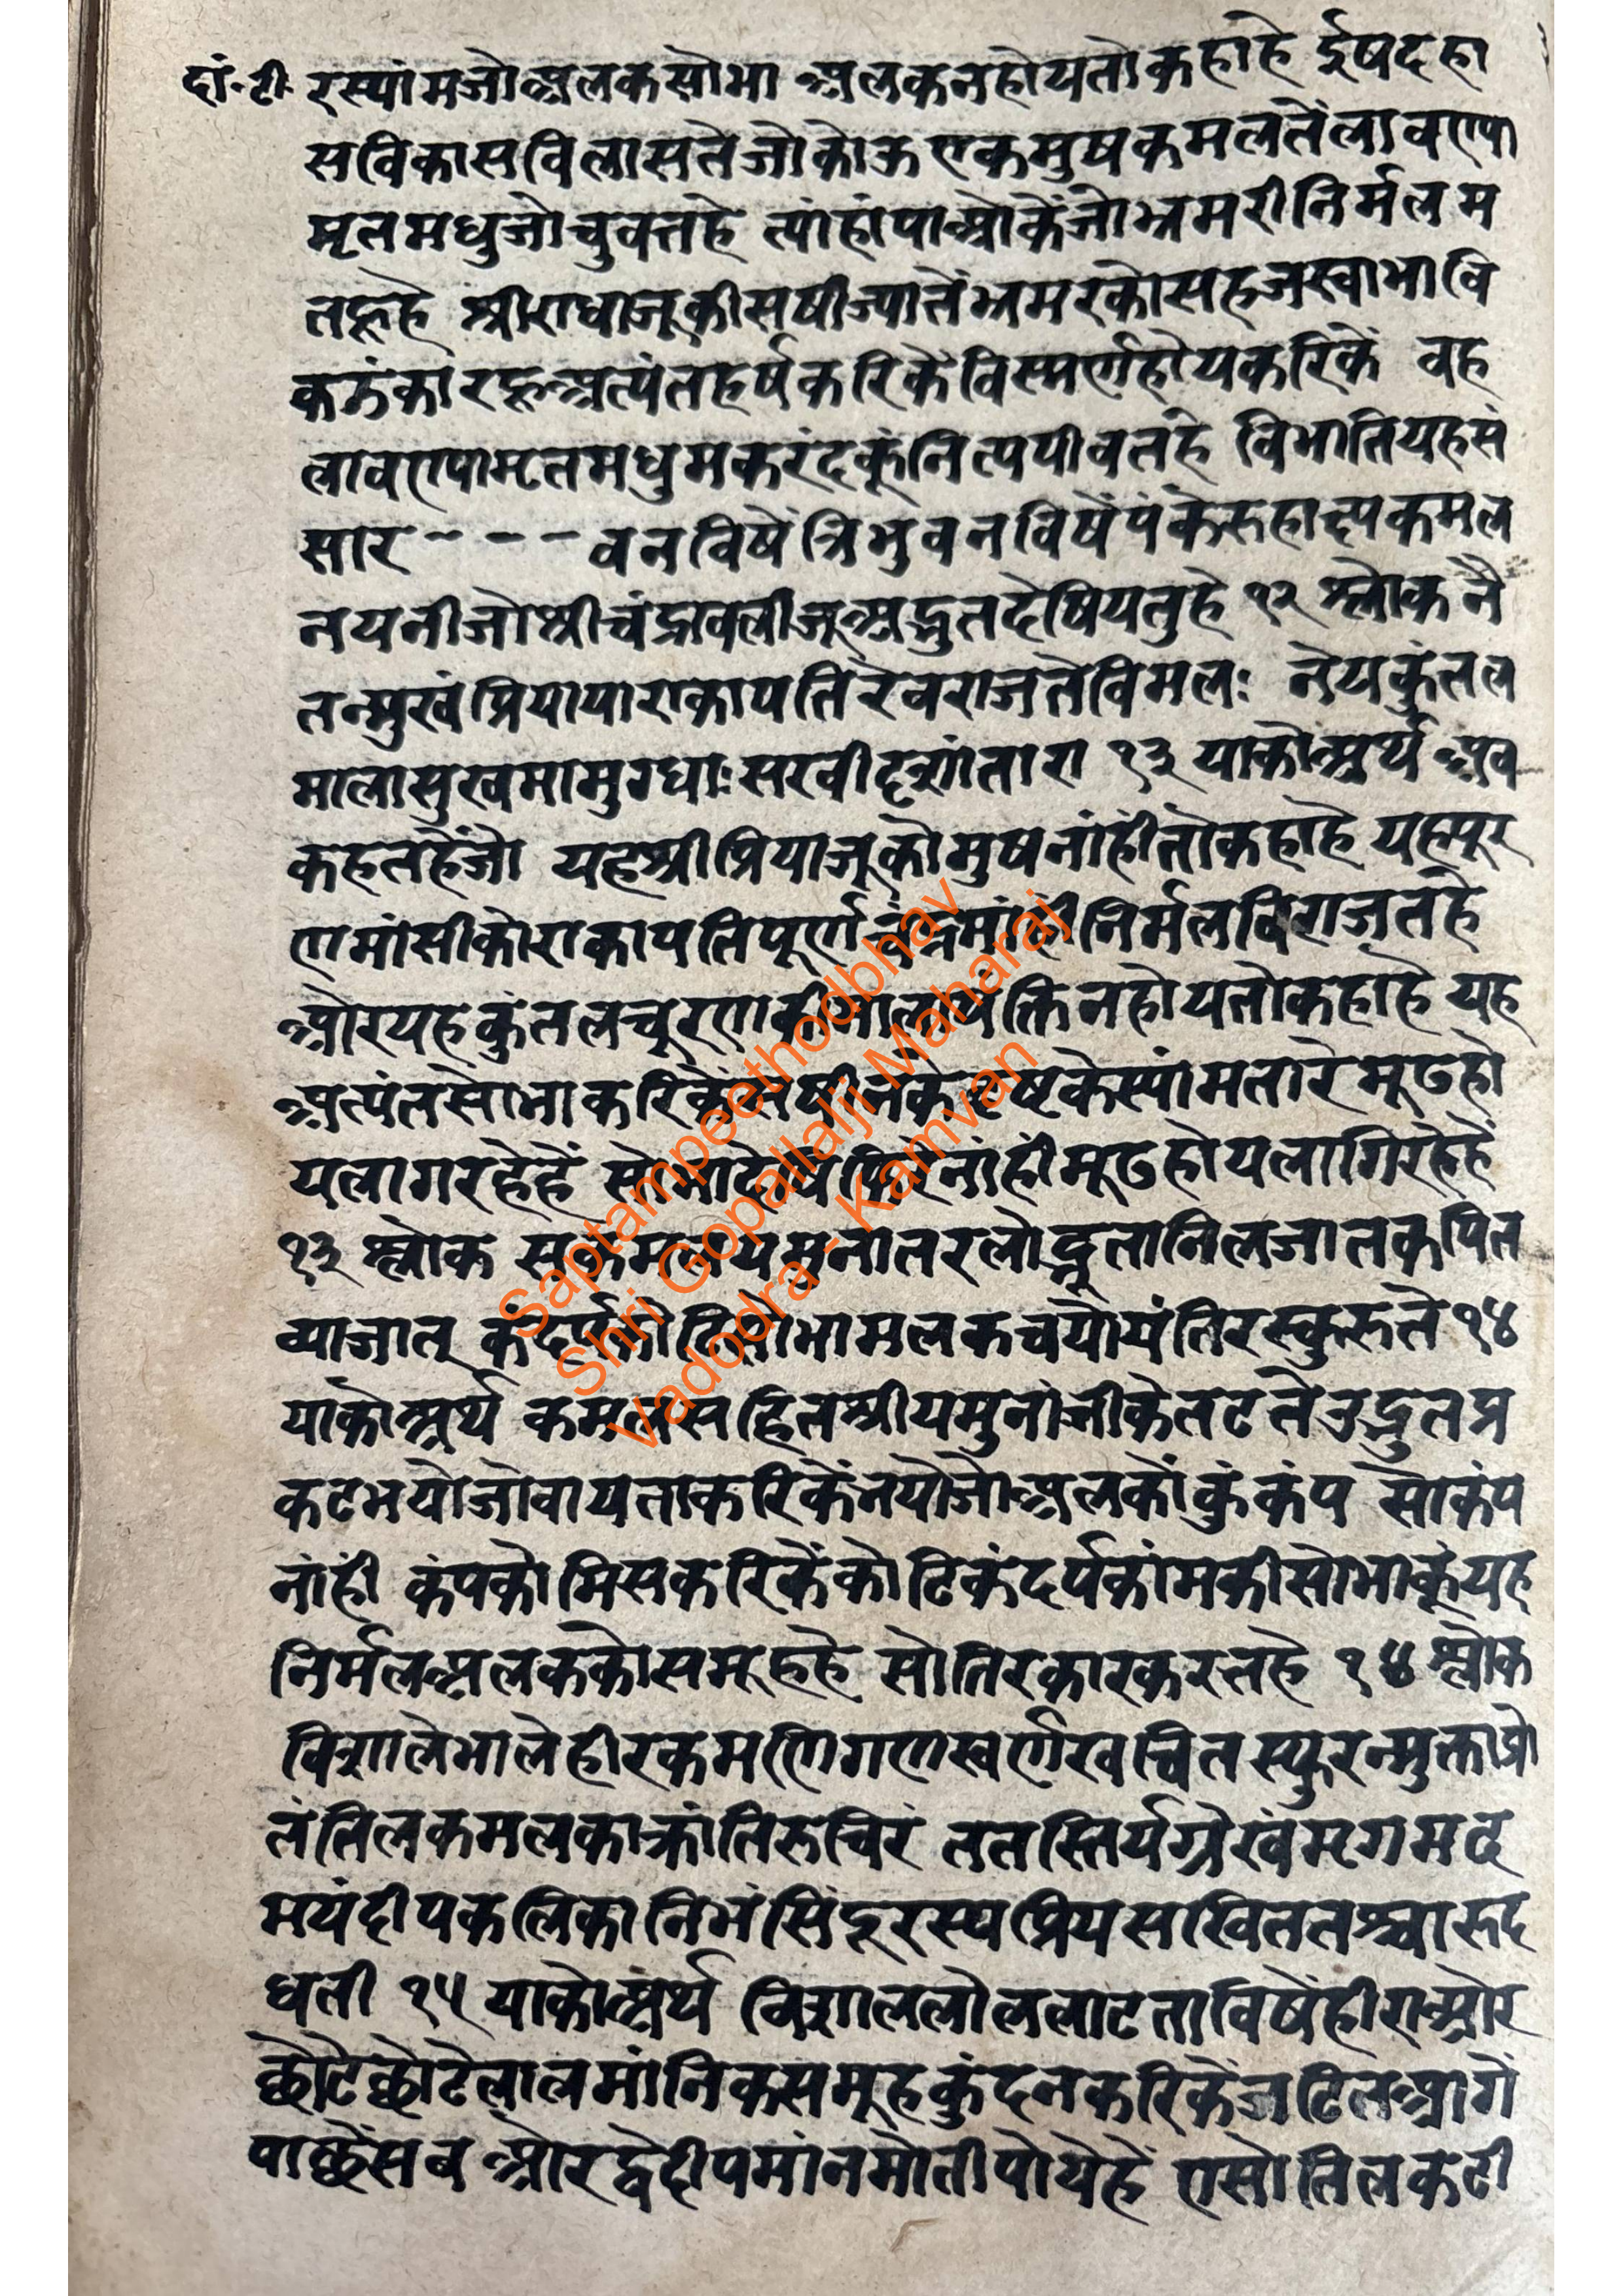 दां.टी. रस्यांमजोअलकसोभा अलकनहोयतोकहाहे ईषदहा
सविकासविलासतेजोकोऊएकमुषकमलतेंलावण्या
मृतमधुजोचुवतहे त्यांहांपाओकेंजोभ्रमरीनिर्मलम
तह्नहे श्रीराधाजूकीसषीज्यातेंभ्रमरकोसहजस्वाभावि
कझंकारह्नअत्यंतहर्षकरिकेंविस्मर्णहोयकरिकें वह
लावण्यामृतमधुमकरंदकूंनित्यपीवतहे विभातियहसं
सार - - - वनविषेंत्रिभुवनविषेंपंकेरुहाक्ष्पकमल
नयनीजोश्रीचंद्रावलीजूअद्भुतदेषियतुहे १२ श्लोक नै
तन्मुखंप्रियायाराकापतिरेवराजतेविमलः नेयकुंतल
मालासुखमामुग्धाःसखीदृशांतारा १३ याकोअर्थ अब
कहतहेंजो यहश्रीप्रियाजूकोमुषनांहींतोकहाहे यहपूर
णमांसीकोराकापतिपूर्णचंद्रमांहीनिर्मलविराजतहे
ओरयहकुंतलचूरणकीमालापंक्तिनहोयतोकहाहे यह
अत्यंतसोभाकरिकेंसषीनकेदृष्टकेस्यांमतारेमूढहो
यलागरहेहें सोभादेषिफिरेनांहींमूढहोयलागिरहेहें
१३ श्लोक सकमलयमुनातरलोद्भूतानिलजातकंपित
व्याजात् कंदर्पकोटिशोभामलकचयोयंतिरस्कुरुते १४
याकोअर्थ कमलसहितश्रीयमुनांजीकेतटतेउद्भुतप्र
कटभयोजोवायताकरिकेंनयोजोअलकोंकुंकंप सोकंप
नांहीं कंपकोमिसकरिकेंकोटिकंदर्पकांमकीसोभाकूंयह
निर्मलअलककोसमूहहे सोतिरकारकरतहे १४ श्लोक
विशालेभालेहीरकमणिगणस्वर्णखचितस्फुरन्मुक्ताप्रो
तंतिलकमलकाक्रांतिरुचिरं ततस्तिर्यग्रेखंमृगमद
मयंदीपकलिकानिभंसिंदूरस्यप्रियसखिततश्चारुद
धती १५ याकोअर्थ विशाललोललाटताविषेंहीराओर
छोटेछोटेलालमांनिकसमूहकुंदनकरिकेंजटितआगें
पाछेंसब ओरद्वेदीपमांनमोतीपोयेहें एसोतिलकटी
Saptampeethodbhav
Shri Gopallalji Maharaj
Vadodra - Kamvan